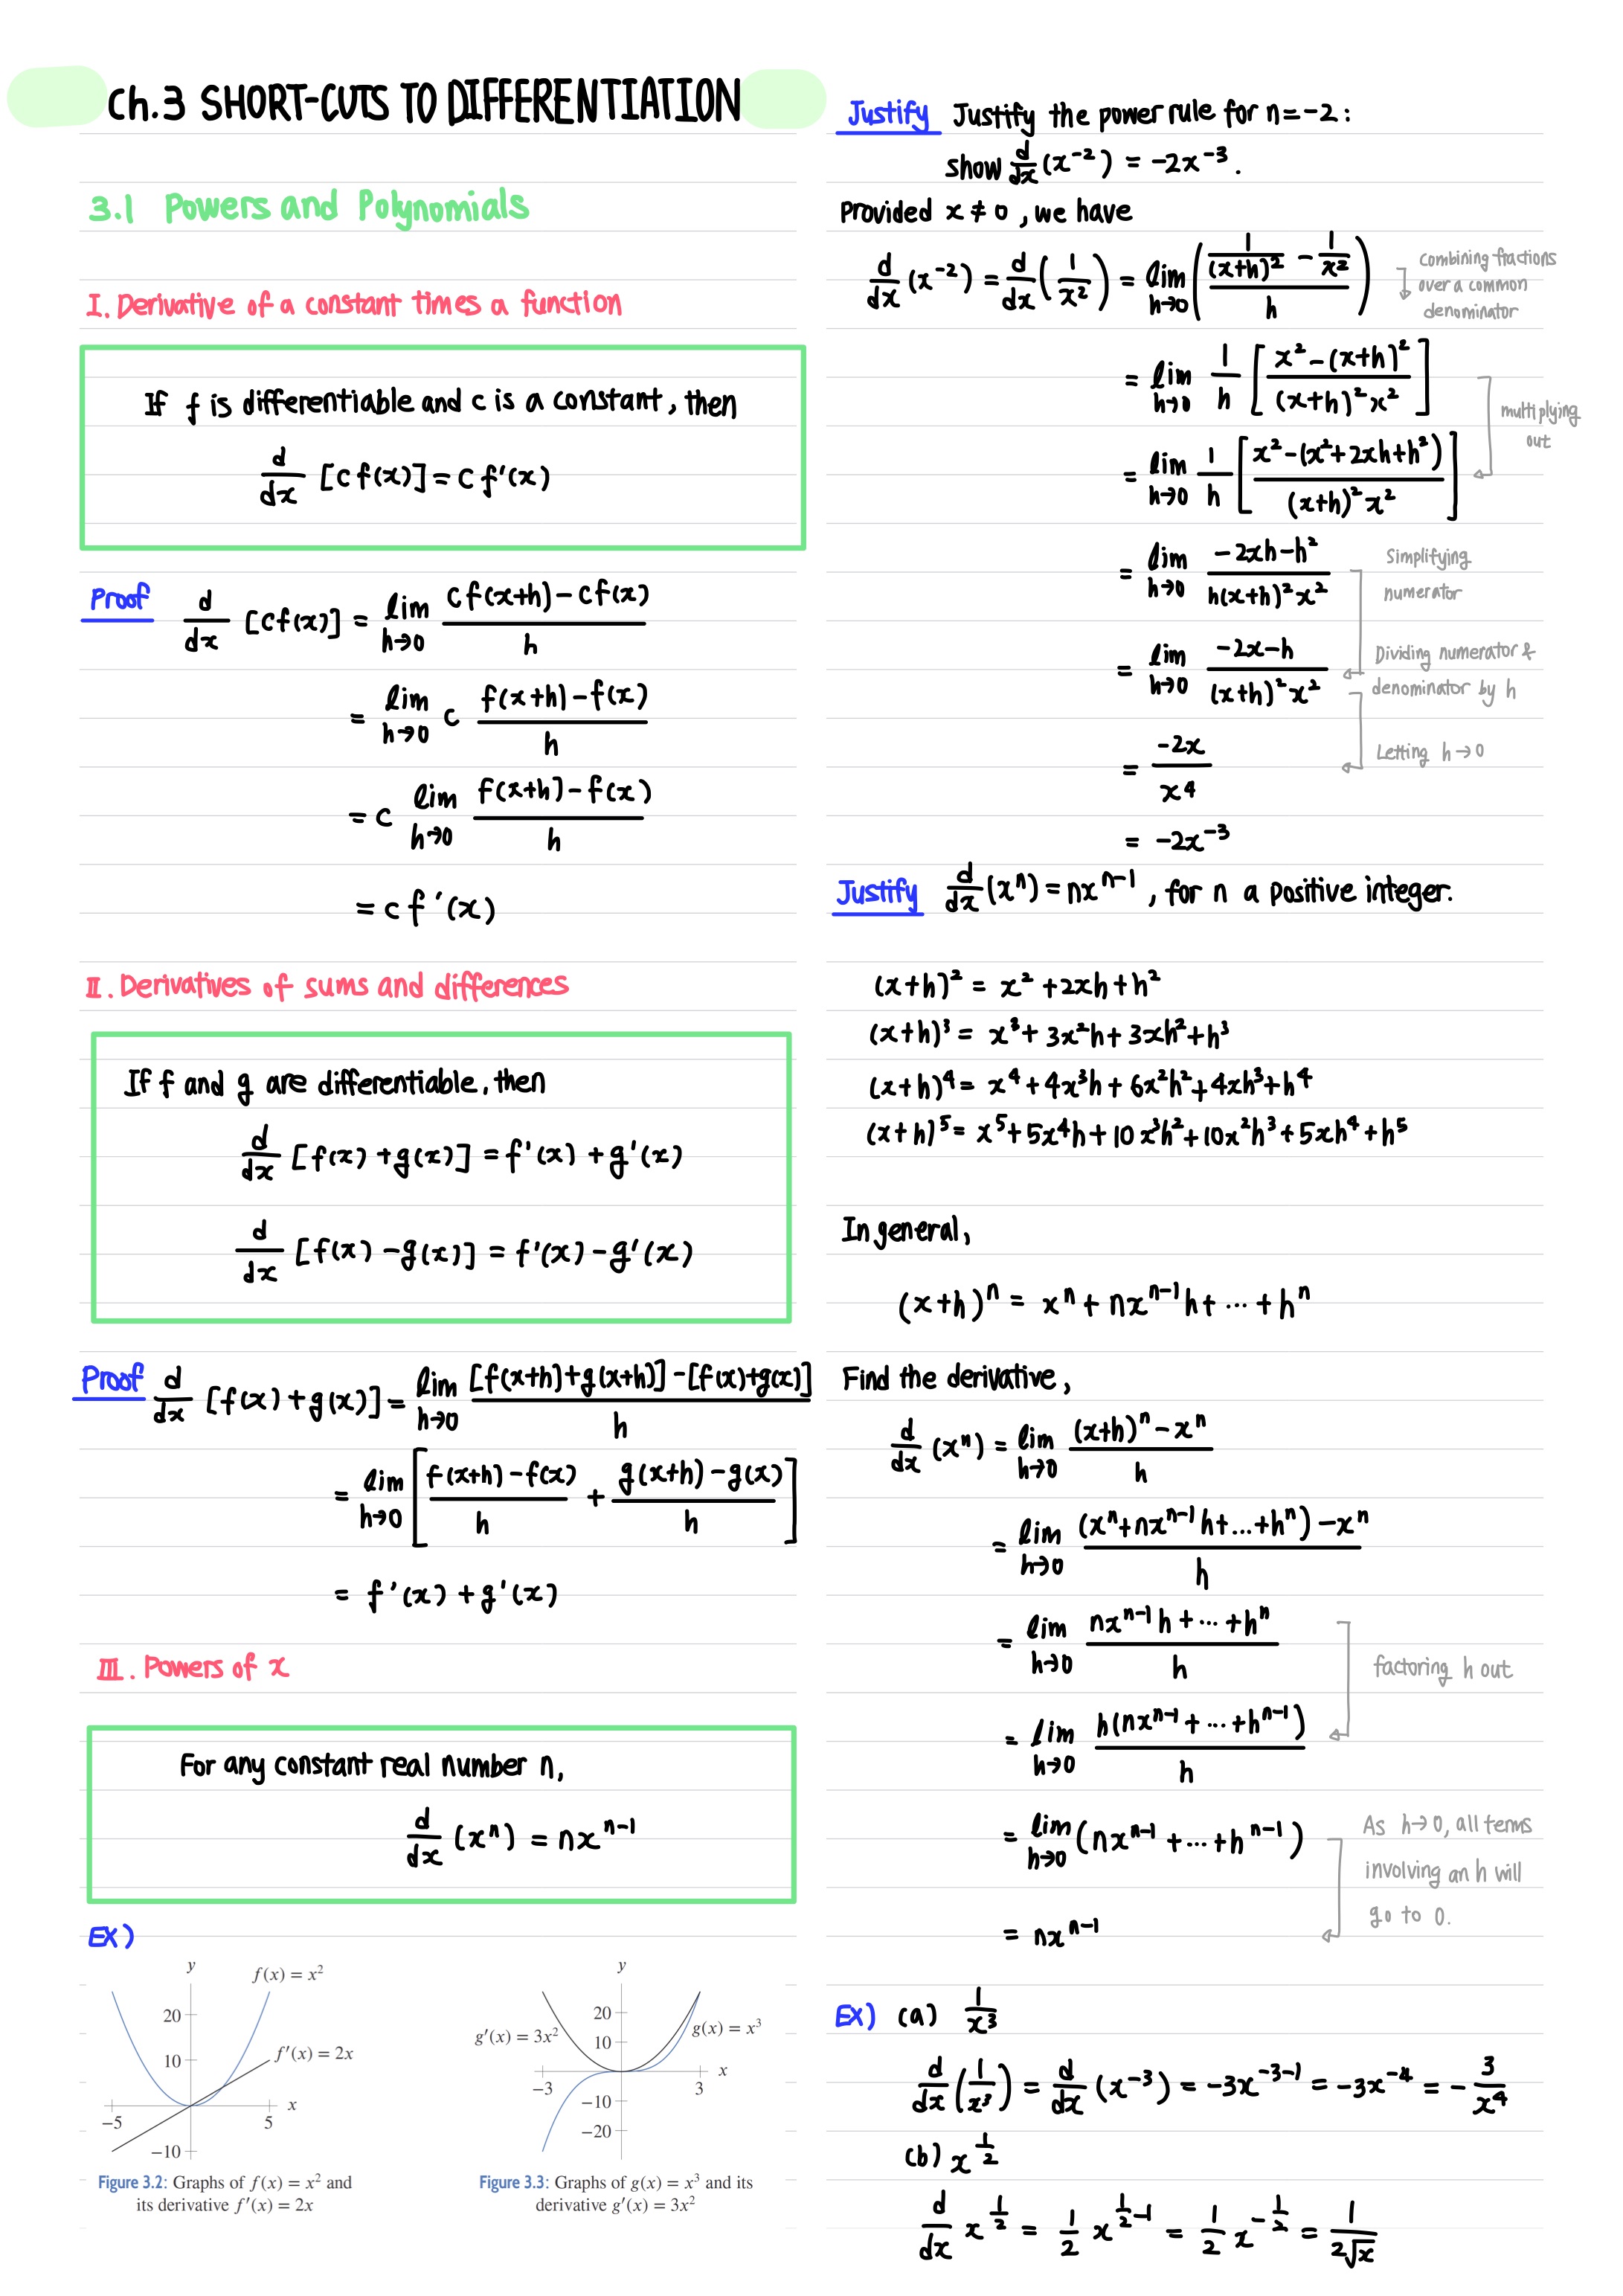 Ch.3 SHORT-CUTS TO DIFFERENTIATION
3.1 Powers and Polynomials
I. Derivative of a constant times a function
If f is differentiable and c is a constant, then
d/dx [c f(x)] = c f'(x)
Proof d/dx [cf(x)] = lim h→0 (cf(x+h) − cf(x))/h
= lim h→0 c (f(x+h) − f(x))/h
= c lim h→0 (f(x+h) − f(x))/h
= c f'(x)
II. Derivatives of sums and differences
If f and g are differentiable, then
d/dx [f(x) + g(x)] = f'(x) + g'(x)
d/dx [f(x) − g(x)] = f'(x) − g'(x)
Proof d/dx [f(x) + g(x)] = lim h→0 ([f(x+h)+g(x+h)] − [f(x)+g(x)])/h
= lim h→0 [(f(x+h) − f(x))/h + (g(x+h) − g(x))/h]
= f'(x) + g'(x)
III. Powers of x
For any constant real number n,
d/dx (xⁿ) = nxⁿ⁻¹
EX)
y
f(x) = x²
20
f′(x) = 2x
10
x
−5
5
−10
Figure 3.2: Graphs of f(x) = x² and
its derivative f′(x) = 2x
y
20
g′(x) = 3x²
g(x) = x³
10
x
−3
3
−10
−20
Figure 3.3: Graphs of g(x) = x³ and its
derivative g′(x) = 3x²
Justify Justify the power rule for n=−2:
show d/dx (x⁻²) = −2x⁻³.
Provided x ≠ 0, we have
d/dx (x⁻²) = d/dx (1/x²) = lim h→0 ((1/(x+h)² − 1/x²)/h)
Combining fractions
over a common
denominator
= lim h→0 1/h [(x² − (x+h)²)/((x+h)²x²)]
multiplying
out
= lim h→0 1/h [(x² − (x²+2xh+h²))/((x+h)²x²)]
= lim h→0 (−2xh−h²)/(h(x+h)²x²)
Simplifying
numerator
= lim h→0 (−2x−h)/((x+h)²x²)
Dividing numerator &
denominator by h
= −2x/x⁴
Letting h→0
= −2x⁻³
Justify d/dx (xⁿ) = nxⁿ⁻¹, for n a positive integer.
(x+h)² = x² + 2xh + h²
(x+h)³ = x³ + 3x²h + 3xh² + h³
(x+h)⁴ = x⁴ + 4x³h + 6x²h² + 4xh³ + h⁴
(x+h)⁵ = x⁵ + 5x⁴h + 10x³h² + 10x²h³ + 5xh⁴ + h⁵
In general,
(x+h)ⁿ = xⁿ + nxⁿ⁻¹h + ⋯ + hⁿ
Find the derivative,
d/dx (xⁿ) = lim h→0 ((x+h)ⁿ − xⁿ)/h
= lim h→0 ((xⁿ+nxⁿ⁻¹h+...+hⁿ) − xⁿ)/h
= lim h→0 (nxⁿ⁻¹h + ⋯ + hⁿ)/h
factoring h out
= lim h→0 h(nxⁿ⁻¹ + ⋯ + hⁿ⁻¹)/h
= lim h→0 (nxⁿ⁻¹ + ⋯ + hⁿ⁻¹)
As h→0, all terms
involving an h will
go to 0.
= nxⁿ⁻¹
EX) (a) 1/x³
d/dx (1/x³) = d/dx (x⁻³) = −3x⁻³⁻¹ = −3x⁻⁴ = −3/x⁴
(b) x^(1/2)
d/dx x^(1/2) = 1/2 x^(1/2−1) = 1/2 x^(−1/2) = 1/(2√x)